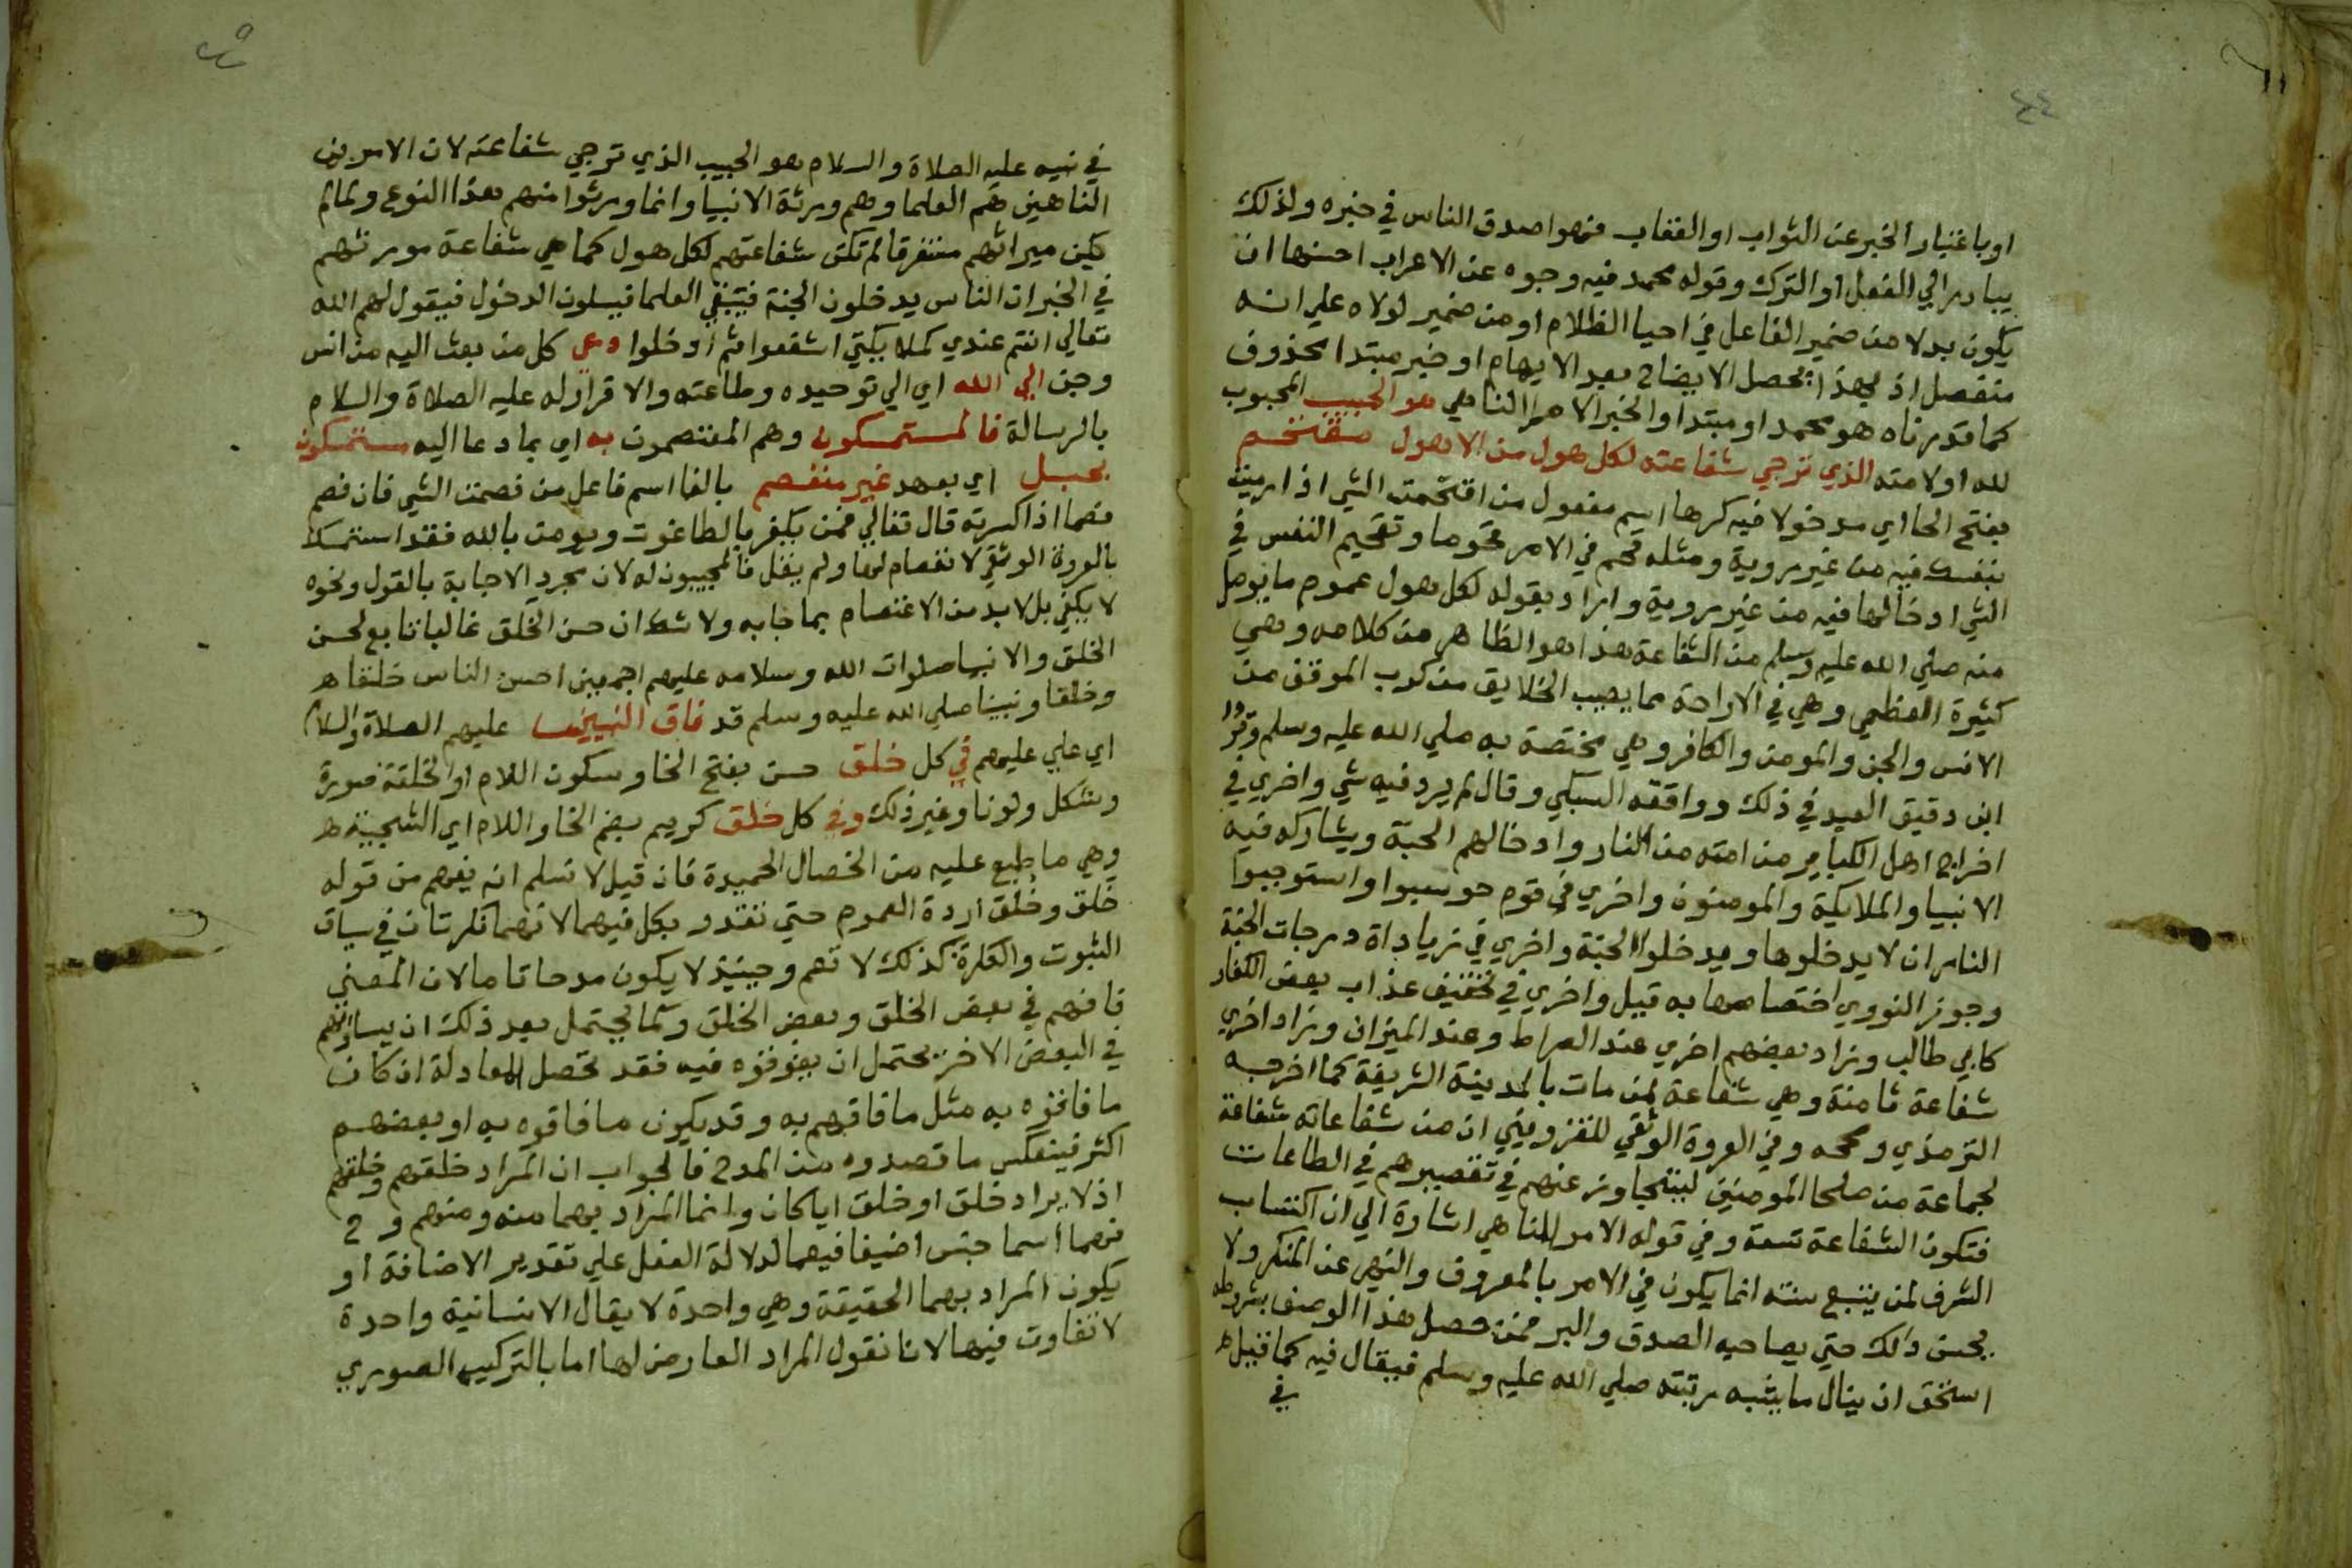 ٤٤
او باعتبار الخبر عن الثواب او العقاب فهو اصدق الناس في خبره ولذلك
يبادر الي الفعل او الترك وقوله محمد فيه وجوه عن الاعراب احسنها ان
يكون بدلا من ضمير الفاعل في احيا الظلام او من ضمير لولاه علي انه
منفصل اذ بهذا يحصل الايضاح بعد الايهام او خبر مبتدا محذوف
كما قدرناه هو محمد او مبتدا والخبر الامر الناهي هو الحبيب المحبوب
لله او لامته الذي ترجي شفاعته لكل هول من الاهوال مقتحم
بفتح الحا اي مدخولا فيه كرها اسم مفعول من اقتحمت الشي اذا رميت
بنفسك فيه من غير روية ومثله قحم في الامر قحوما وتقحيم النفس في
الشي ادخالها فيه من غير روية واراد بقوله لكل هول عموم ما يوصل
منه صلي الله عليه وسلم من الشفاعة هذا هو الظاهر من كلامه وهي
كثيرة العظمي وهي في الاراحة مما يصيب الخلايق من كرب الموقف من
الانس والجن والمومن والكافر وهي مختصة به صلي الله عليه وسلم
ابن دقيق العيد في ذلك ووافقه السبكي وقال لم يرد فيه شي واخري في
اخراج اهل الكباير من امته من النار وادخالهم الجنة ويشاركه فيه
الانبيا والملايكة والمومنون واخري في قوم حوسبوا واستوجبوا
النار ان لا يدخلوها ويدخلوا الجنة واخري في زياداة درجات الجنة
وجوز النووي اختصاصها به قيل واخري في تخفيف عذاب بعض الكفار
كابي طالب وزاد بعضهم اخري عند الصراط وعند الميزان وزاد اخري
شفاعة ثامنة وهي شفاعة لمن مات بالمدينة الشريفة كما اخرجه
الترمذي وصححه وفي العروة الوثقي للقزويني ان من شفاعاته شفاعة
لجماعة من صلحا المومنين ليتجاوز عنهم في تقصيرهم في الطاعات
فتكون الشفاعة تسعة وفي قوله الامر الناهي اشارة الي ان اكتساب
الشرف لمن يتبع سنته انما يكون في الامر بالمعروف والنهي عن المنكر ولا
يحسن ذلك حتي يصاحبه الصدق والبر فمن حصل هذا الوصف بشرطه
استحق ان ينال ما يشبه مرتبته صلي الله عليه وسلم فيقال فيه كما قيل
في
في نبيه عليه الصلاة والسلام هو الحبيب الذي ترجي شفاعته لان الامرين
الناهين هم العلما وهم ورثة الانبيا وانما ورثوا منهم هذا النوع ولما لم
يكن ميراثهم متفرقا لم تكن شفاعتهم لكل هول كما هي شفاعة مورثهم
في الخبر ان الناس يدخلون الجنة فتبقي العلما فيسلون الدخول فيقول لهم الله
تعالي انتم عندي كملايكتي اشفعوا ثم ادخلوا دعي كل من بعث اليه من انس
وجن الي الله اي الي توحيده وطاعته والاقرار له عليه الصلاة والسلام
بالرسالة فالمستمسكون وهم المعتصمون به اي بما دعا اليه مستمسكون
بحبل اي بعهد غير منفصم بالفا اسم فاعل من فصمت الشي فانفصم
فصما اذا كسرته قال تعالي فمن يكفر بالطاغوت ويومن بالله فقد استمسك
بالعروة الوثقي لا انفصام لها ولم يقل فالمجيبون له لان مجرد الاجابة بالقول ونحوه
لا يكفي بل لا بد من الاعتصام بما جا به ولا شك ان حسن الخلق غالبا تابع لحسن
الخلق والانبيا صلوات الله وسلامه عليهم اجمعين احسن الناس خلقا
وخلقا ونبينا صلي الله عليه وسلم قد فاق النبيين عليهم الصلاة والسلام
اي علي عليهم في كل خلق حسن بفتح الخا وسكون اللام او الخلقة صورة
وشكل ولونا وغير ذلك وفي كل خلق كريم بضم الخا واللام اي الشجية
وهي ما طبع عليه من الخصال الحميدة فان قيل لا نسلم انه يفهم من قوله
خلق وخلق اردة العموم حتي تقدر بكل فيهما لانهما نكرتان في سياق
الثبوت والنكرة كذلك لا تعم وحينيذ لا يكون مدحا تاما لان المعني
فاقهم في بعض الخلق وبعض الخلق وكما يحتمل بعد ذلك ان يساويهم
في البعض الاخر يحتمل ان يفوقوه فيه فقد تحصل المعادلة ان كان
ما فاقوه به مثل ما فاقهم به وقد يكون ما فاقوه به او بعضهم
اكثر فينعكس ما قصدوه من المدح فالجواب ان المراد خلقهم وخلقهم
اذ لا يراد خلق او خلق ايا كان وانما المراد بهما منه ومنهم وح
فهما اسما جنس اضيفا فيهما لدلالة الفعل علي تقدير الاضافة او
يكون المراد بهما الحقيقة وهي واحدة لا يقال الانسانية واحدة
لا تفاوت فيها لانا نقول المراد العارض لها اما بالتركيب الصوري